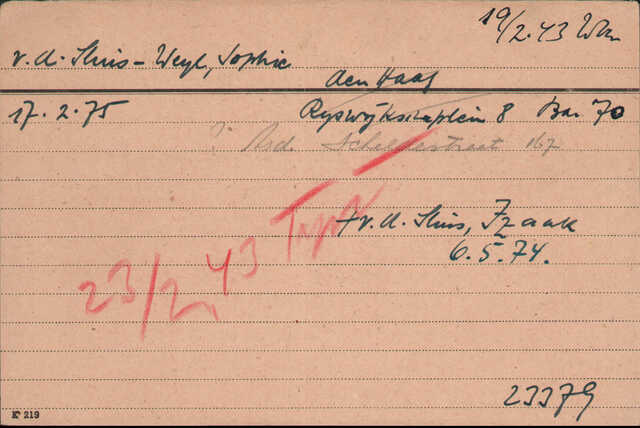 19/2.43 Wbk
v.d. Sluis - Weyl, Sophie
den Haag
17.2.75 Ryswijkscheplein 8 Bar 70
Asd. Scheldestraat 167
+ v.d. Sluis, Izaak
6.5.74.
23/2.43 Tsp.
23379
K 219